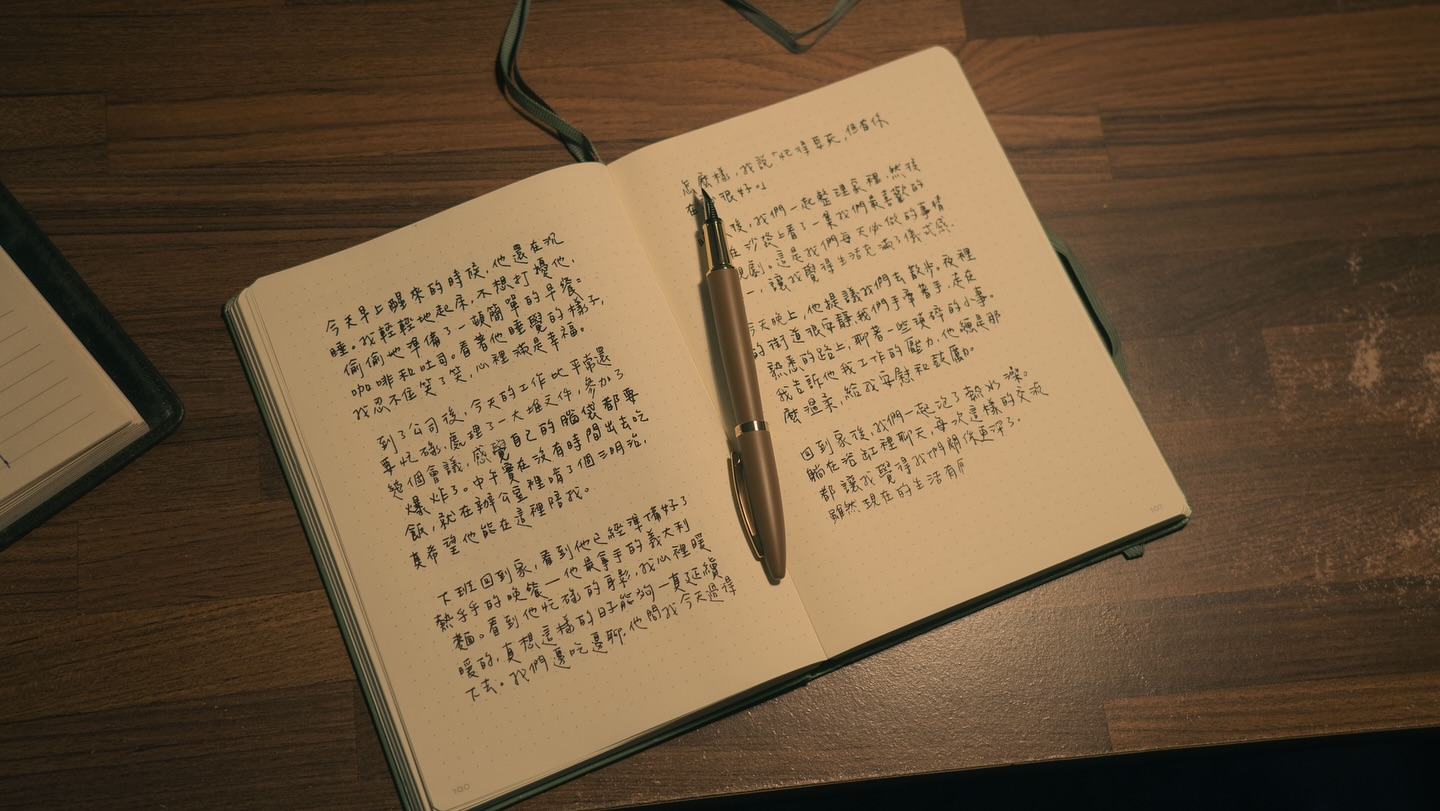 今天早上醒來的時候,他還在沉
睡。我輕輕地起床,不想打擾他,
偷偷地準備了一頓簡單的早餐:
咖啡和吐司。看著他睡覺的樣子,
我忍不住笑了笑,心裡滿是幸福。
到了公司後,今天的工作比平常還
要忙碌,處理了一大堆文件,參加了
幾個會議,感覺自己的腦袋都要
爆炸了。中午實在沒有時間出去吃
飯,就在辦公室裡啃了個三明治,
真希望他能在這裡陪我。
下班回到家,看到他已經準備好了
熱乎乎的晚餐—他最拿手的義大利
麵。看到他忙碌的身影,我心裡暖
暖的,真想這樣的日子能夠一直延續
下去。我們邊吃邊聊,他問我今天過得
怎麼樣,我說「忙得要死,但有你
在 很好」
後,我們一起整理家裡,然後
在沙發上看了一集我們最喜歡的
視劇。這是我們每天必做的事情
一,讓我覺得生活充滿了儀式感。
今天晚上,他提議我們去散步。夜裡
的街道很安靜,我們手牽著手,走在
熟悉的路上,聊著一些瑣碎的小事。
我告訴他我工作的壓力,他總是那
麼溫柔,給我安慰和鼓勵。
回到家後,我們一起泡了熱水澡。
躺在浴缸裡聊天,每次這樣的交流
都讓我覺得我們關係更深了。
雖然現在的生活有
100